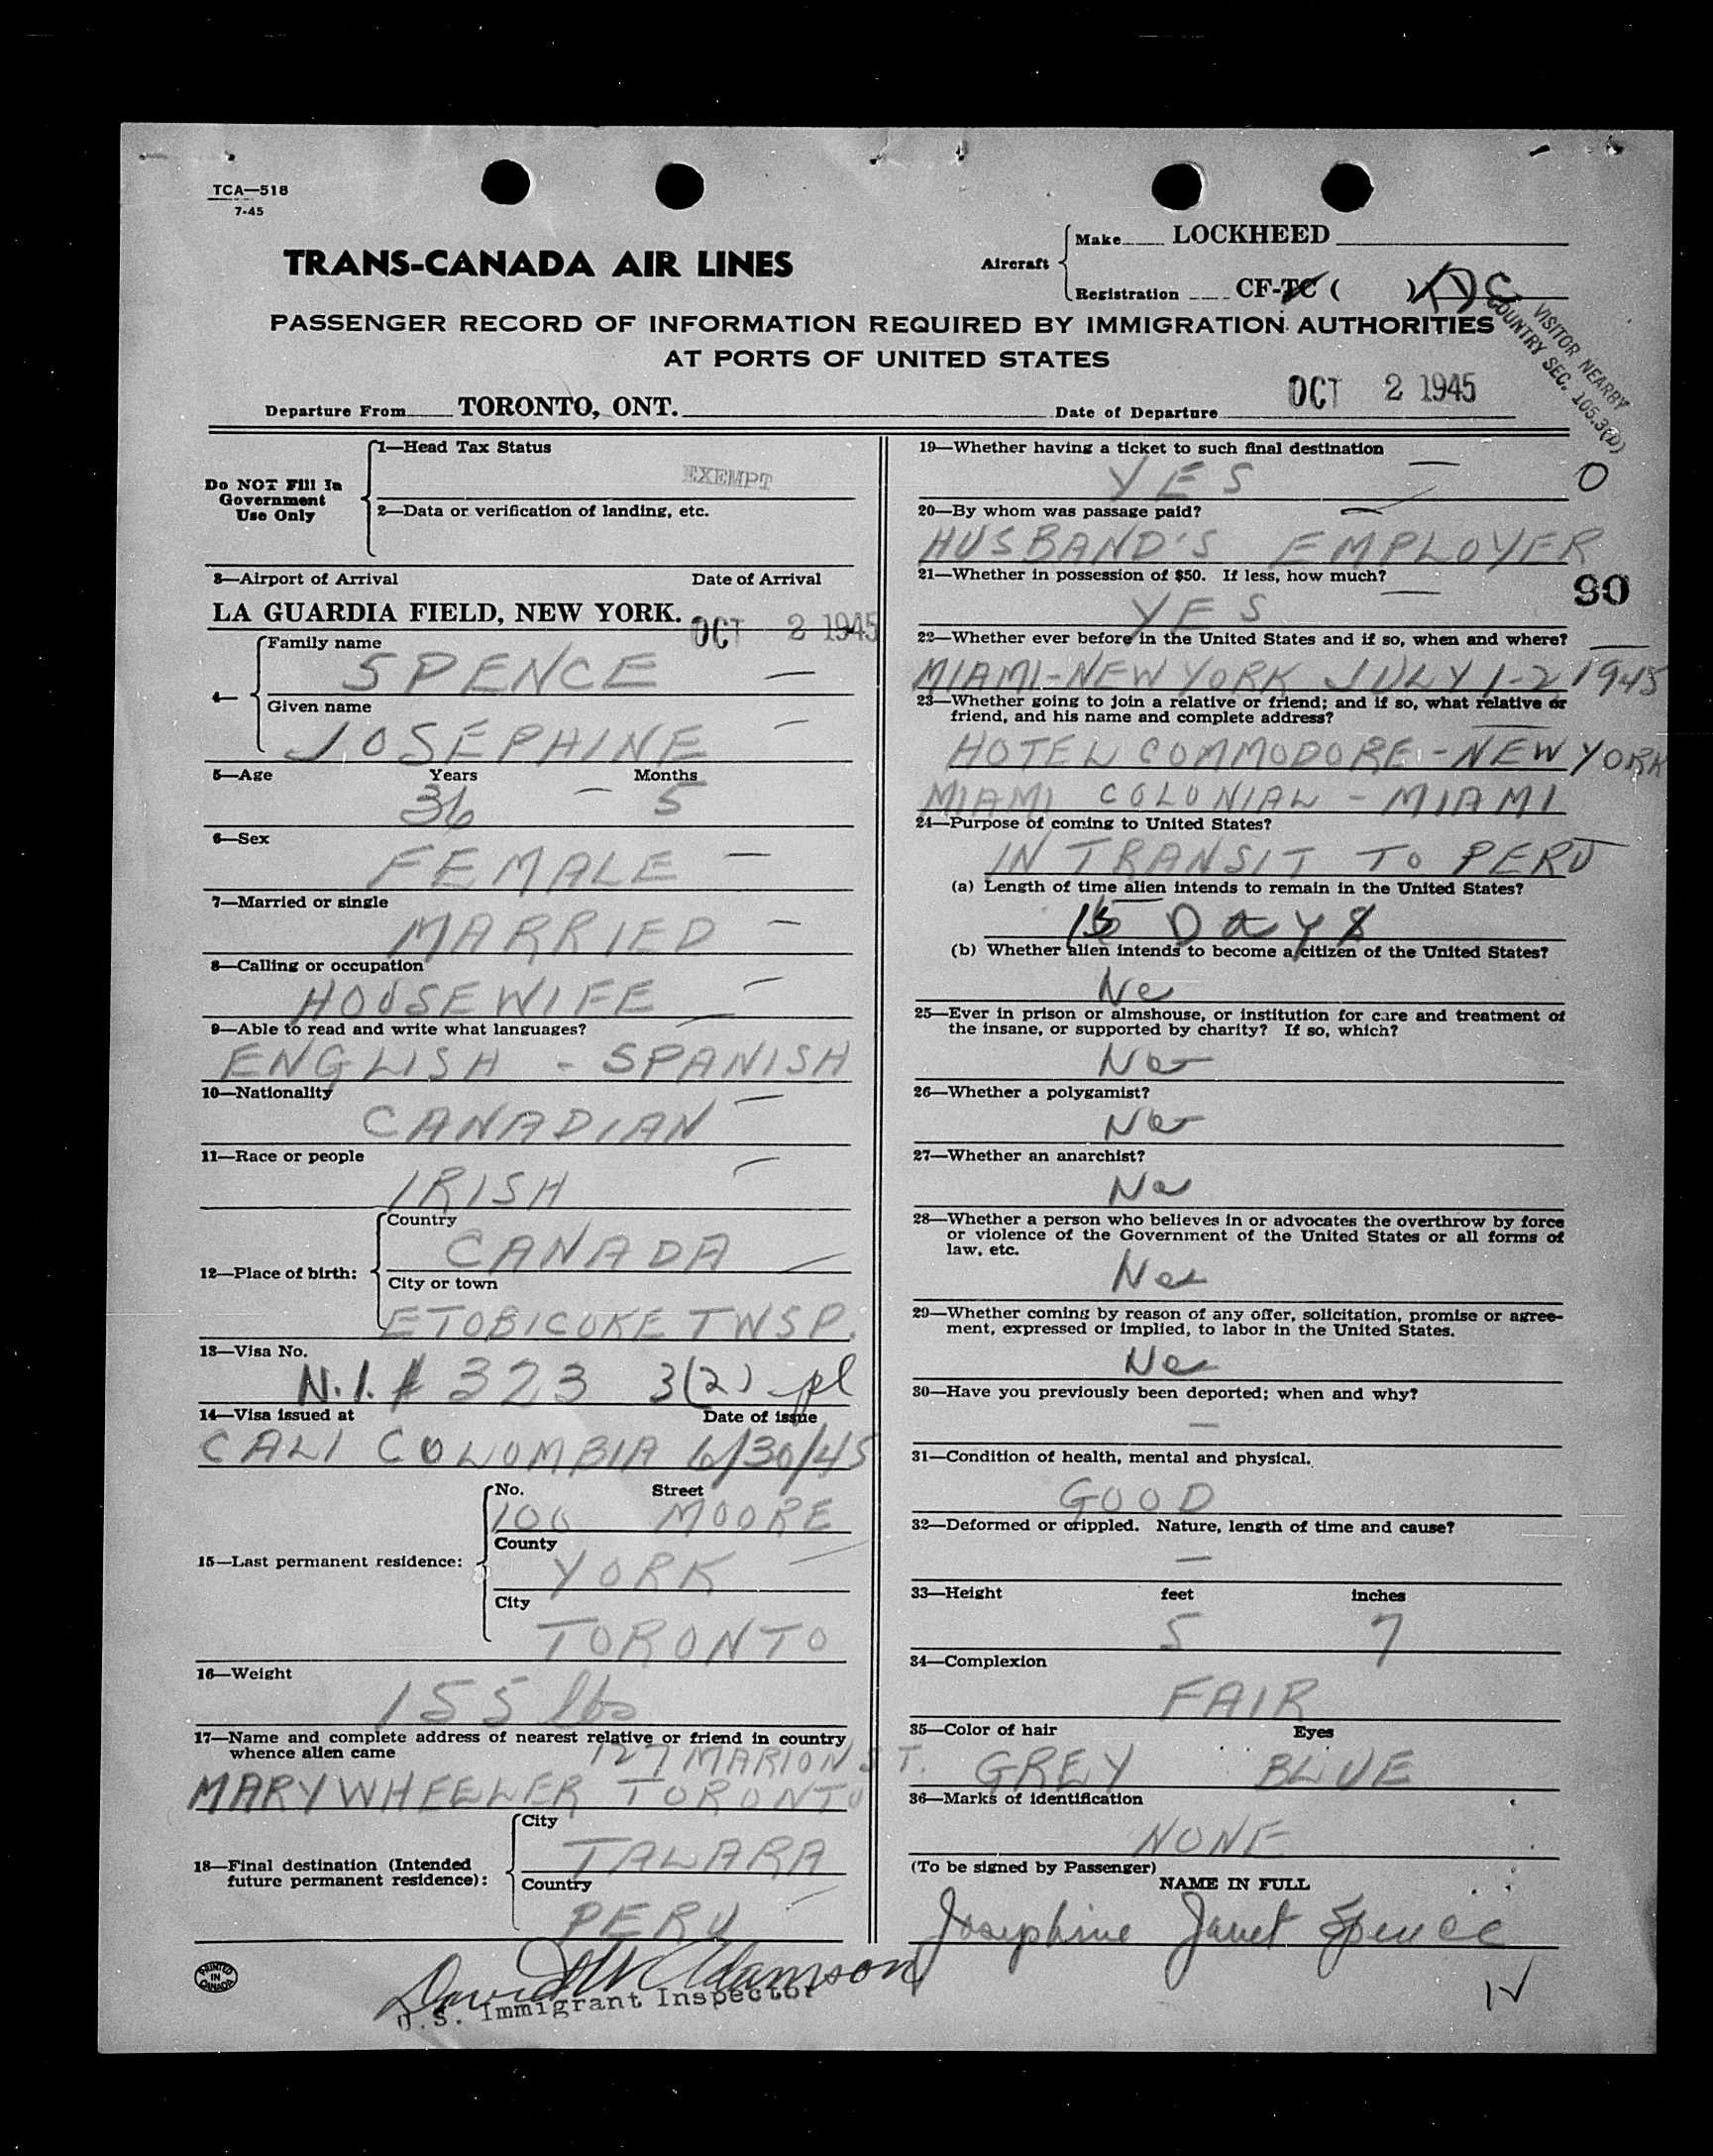 TCA—518
7-45
TRANS-CANADA AIR LINES
Aircraft
Make LOCKHEED
Registration CF-TC ( )
PASSENGER RECORD OF INFORMATION REQUIRED BY IMMIGRATION AUTHORITIES
AT PORTS OF UNITED STATES
VISITOR NEARBY
COUNTRY SEC. 105.3(D)
Departure From TORONTO, ONT. Date of Departure OCT 2 1945
Do NOT Fill In
Government
Use Only
1—Head Tax Status
EXEMPT
2—Data or verification of landing, etc.
3—Airport of Arrival Date of Arrival
LA GUARDIA FIELD, NEW YORK. OCT 2 1945
4—
Family name
SPENCE
Given name
JOSEPHINE
5—Age Years Months
36 5
6—Sex
FEMALE
7—Married or single
MARRIED
8—Calling or occupation
HOUSEWIFE
9—Able to read and write what languages?
ENGLISH - SPANISH
10—Nationality
CANADIAN
11—Race or people
IRISH
12—Place of birth:
Country
CANADA
City or town
ETOBICOKE TWSP.
13—Visa No.
N.I. # 323 3(2)
14—Visa issued at Date of issue
CALI COLOMBIA 6/30/45
15—Last permanent residence:
No. Street
100 MOORE
County
YORK
City
TORONTO
16—Weight
155 lbs
17—Name and complete address of nearest relative or friend in country
whence alien came
127 MARION ST.
MARY WHEELER TORONTO
18—Final destination (Intended
future permanent residence):
City
TALARA
Country
PERU
19—Whether having a ticket to such final destination
YES
0
20—By whom was passage paid?
HUSBAND'S EMPLOYER
21—Whether in possession of $50. If less, how much?
YES
90
22—Whether ever before in the United States and if so, when and where?
MIAMI-NEW YORK JULY 1-2 1945
23—Whether going to join a relative or friend; and if so, what relative or
friend, and his name and complete address?
HOTEL COMMODORE - NEW YORK
MIAMI COLONIAL - MIAMI
24—Purpose of coming to United States?
IN TRANSIT TO PERU
(a) Length of time alien intends to remain in the United States?
15 DAYS
(b) Whether alien intends to become a citizen of the United States?
No
25—Ever in prison or almshouse, or institution for care and treatment of
the insane, or supported by charity? If so, which?
No
26—Whether a polygamist?
No
27—Whether an anarchist?
No
28—Whether a person who believes in or advocates the overthrow by force
or violence of the Government of the United States or all forms of
law, etc.
No
29—Whether coming by reason of any offer, solicitation, promise or agree-
ment, expressed or implied, to labor in the United States.
No
30—Have you previously been deported; when and why?
—
31—Condition of health, mental and physical.
GOOD
32—Deformed or crippled. Nature, length of time and cause?
—
33—Height feet inches
5 7
34—Complexion
FAIR
35—Color of hair Eyes
GREY BLUE
36—Marks of identification
NONE
(To be signed by Passenger)
NAME IN FULL
Josephine Janet Spence
PRINTED
IN
CANADA
David Adamson
U.S. Immigrant Inspector